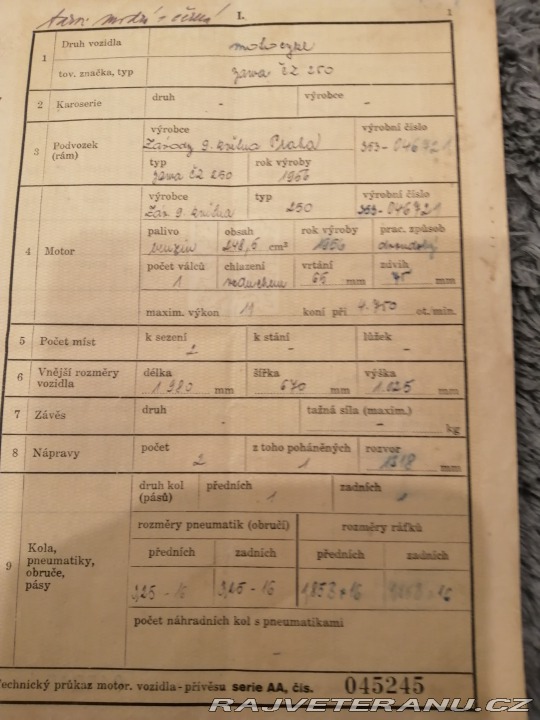 I.
1
1 Druh vozidla motocykl
tov. značka, typ Jawa ČZ 250
2 Karoserie druh - výrobce -
3 Podvozek (rám) výrobce výrobní číslo
Závody 9. května Praha 353-046921
typ rok výroby
Jawa ČZ 250 1956
4 Motor výrobce typ výrobní číslo
Záv 9. května 250 353-046921
palivo obsah rok výroby prac. způsob
benzin 248,5 cm³ 1956 dvoudobý
počet válců chlazení vrtání zdvih
1 vzduchem 65 mm 75 mm
maxim. výkon 11 koní při 4.750 ot./min.
5 Počet míst k sezení k stání lůžek
2 - -
6 Vnější rozměry vozidla délka šířka výška
1980 mm 670 mm 1.025 mm
7 Závěs druh tažná síla (maxim.)
- - kg
8 Nápravy počet z toho poháněných rozvor
2 1 1318 mm
9 Kola, pneumatiky, obruče, pásy
druh kol (pásů) předních 1 zadních 1
rozměry pneumatik (obručí) rozměry ráfků
předních zadních předních zadních
3,25 - 16 3,25 - 16 1,85B x 16
počet náhradních kol s pneumatikami
-
Technický průkaz motor. vozidla - přívěsu serie AA, čís. 045245
RAJVETERANU.CZ